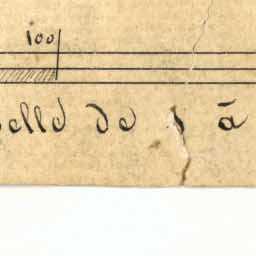 100
elle de 1 à